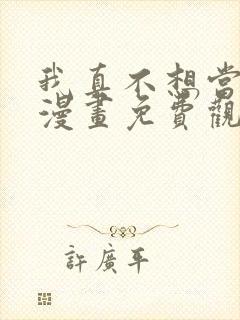 我真不想當
漫畫免費觀
許廣平